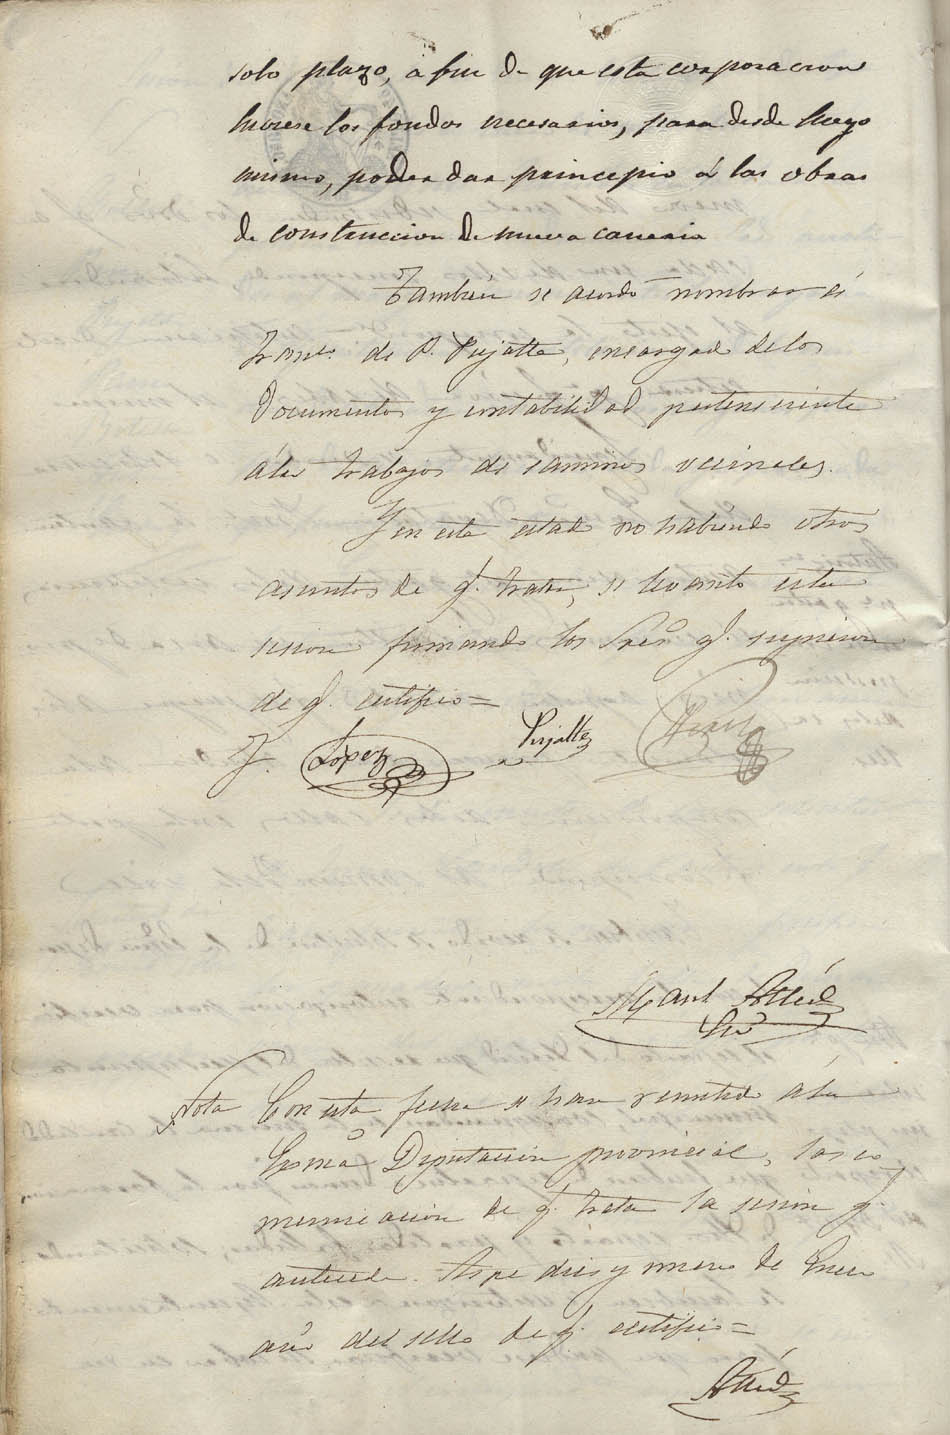 solo plazo, a fin de que esta corporacion
hiciese los fondos necesarios, para desde luego
mismo, poder dar principio á las obras
de construccion de nueva cañeria
Tambien se acordó nombrar á
Franco. de P. Pujalte, encargado de los
documentos y contabilidad perteneciente
á los trabajos de caminos vecinales.
Y en este estado no habiendo otros
asuntos de q. tratar, se levantó esta
sesion firmando los Sres. q. supieron
de q. certifico=
J. Lopez Pujalte
Manl
Srio
Nota Con esta fecha se han remitido á la
Exma Diputacion provincial, las co
municacion de q. trata la sesion q.
antecede. Aspe diez y nueve de Enero
año del sello de q. certifico=